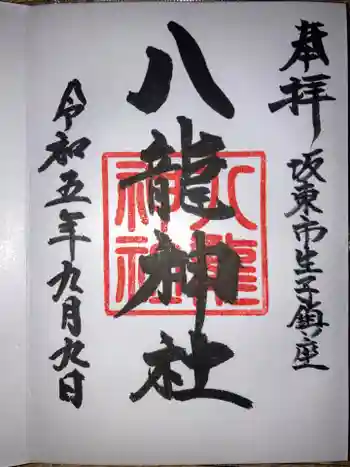 基拝
坂東市生子鎮座
八龍神社
八龍
神社
令和五年九月九日